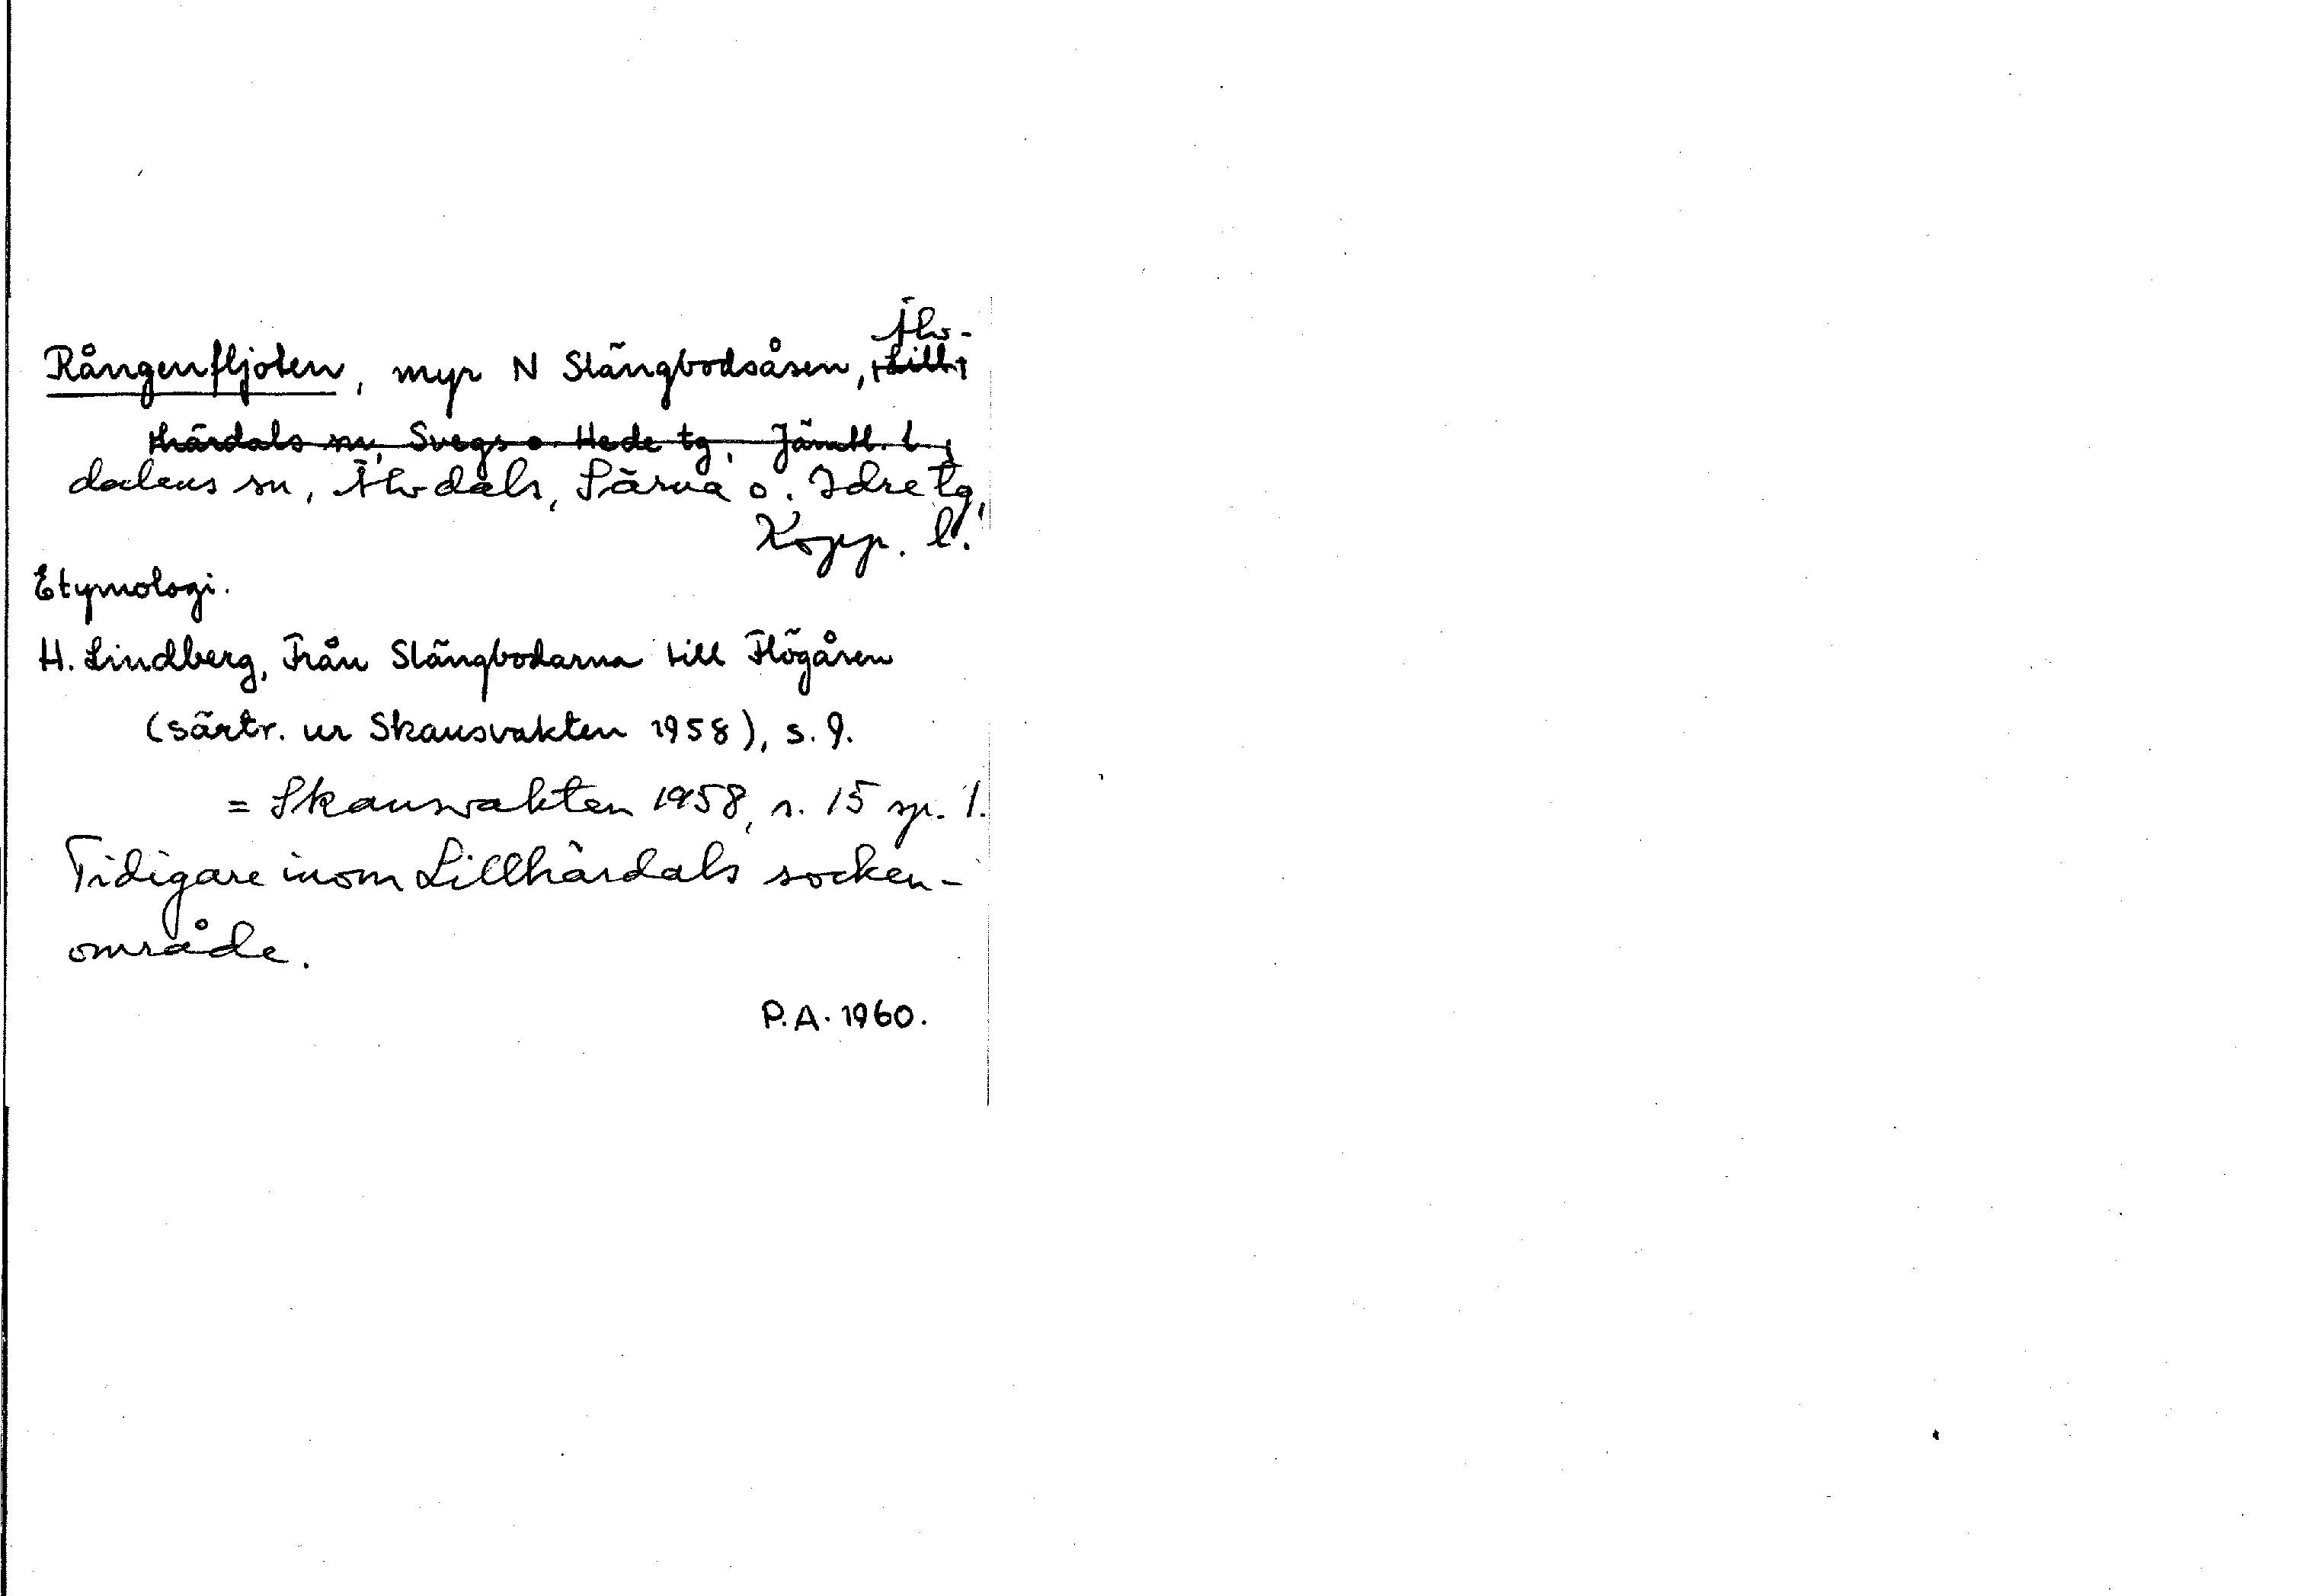 Rångenfljoten, myr N Slängbodsåsen, Lill- Älv-
härdals sn, Svegs o. Hede tg, Jämtl. l.
dalens sn, Älvdals, Särna o. Idre tg,
Kopp. l.
Etymologi.
H. Lindberg, Från Slängbodarna till Flögåsen
(särtr. ur Skansvakten 1958), s. 9.
= Skansvakten 1958, s. 15 sp. 1.
Tidigare inom Lillhärdals socken-
område.
P.A. 1960.